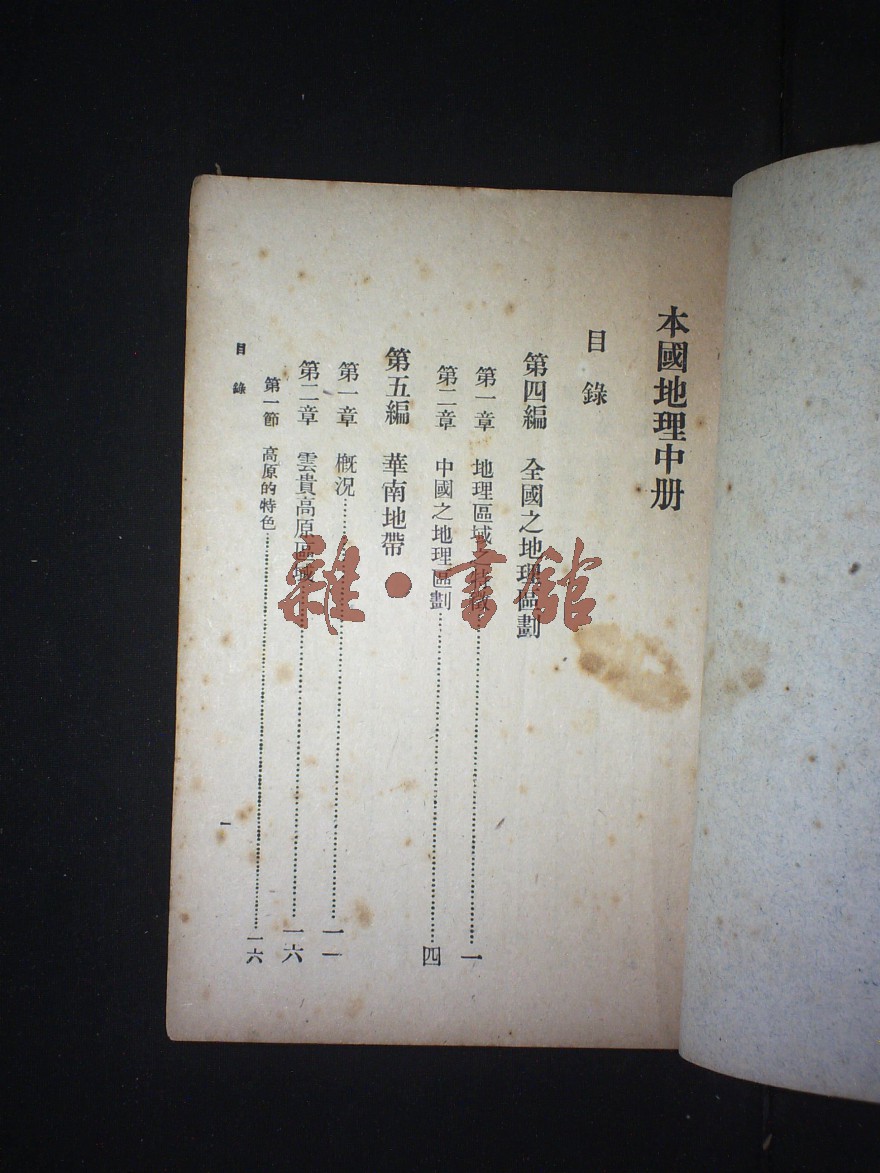 本國地理中册
目錄
第四編 全國之地理區劃
第一章 地理區域之特徵……一
第二章 中國之地理區劃……四
第五編 華南地帶
第一章 概況……一一
第二章 雲貴高原區域……一六
第一節 高原的特色……一六
目錄
一
雜·書館